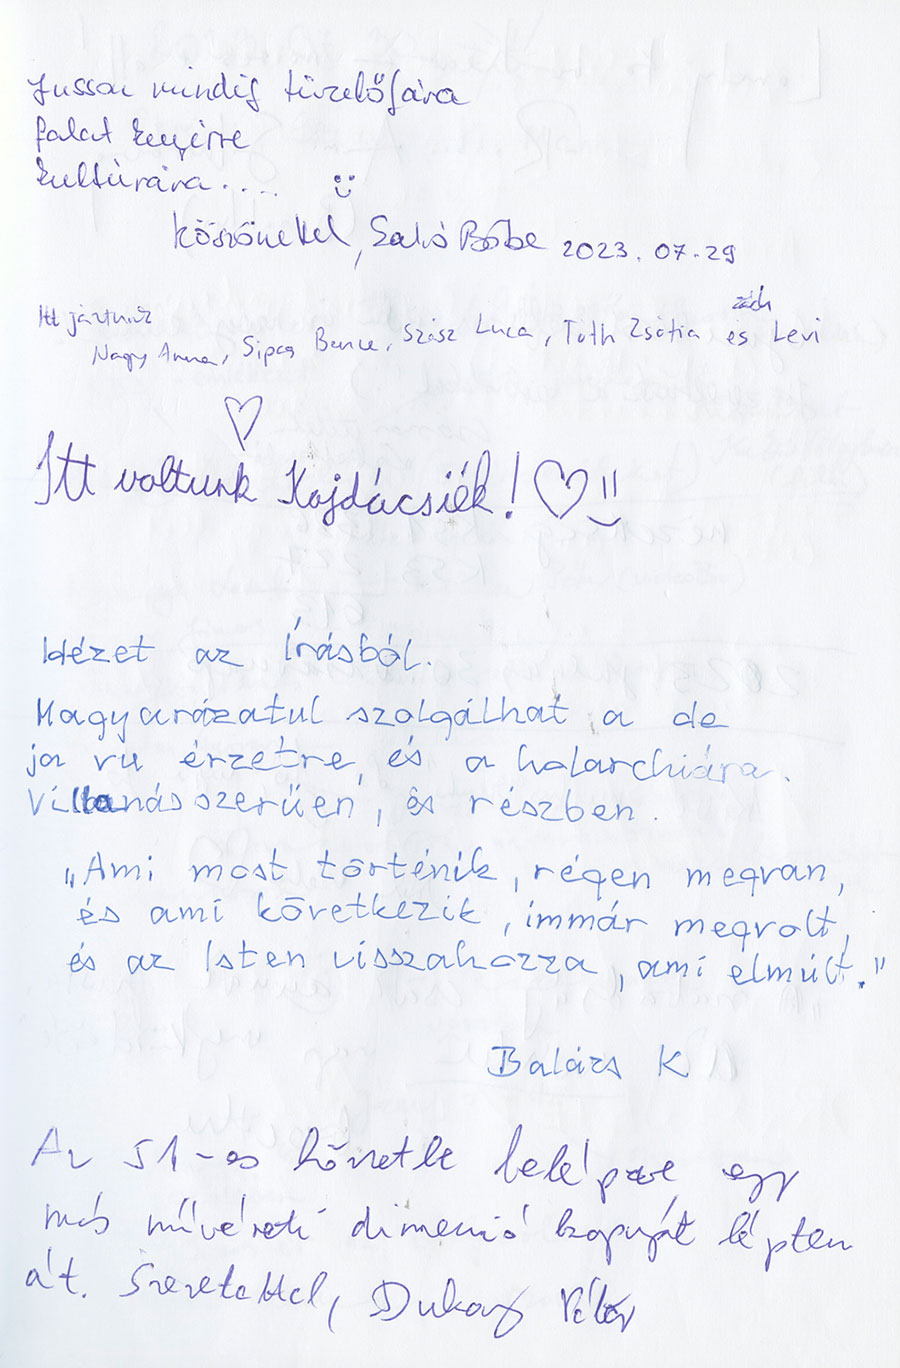 Jusson mindig tüzelőfára
falat kenyérre
kultúrára....
Köszönettel, Szabó Böbe 2023.07.29
Itt jártunk
zách
Nagy Anna, Sipos Bence, Szász Luca, Tóth Zsófia és Levi
Itt voltunk Kajdácsiék!
Idézet az Írásból.
Magyarázatul szolgálhat a de
ja vu érzetre, és a halarchiára.
Villanásszerűen, és részben.
„Ami most történik, régen megvan,
és ami következik, immár megvolt,
és az Isten visszahozza, ami elmúlt."
Balázs K
Az 51-es kötetbe belépve egy
más művészeti dimenzió kapuját léptem
át. Szeretettel, Dukay